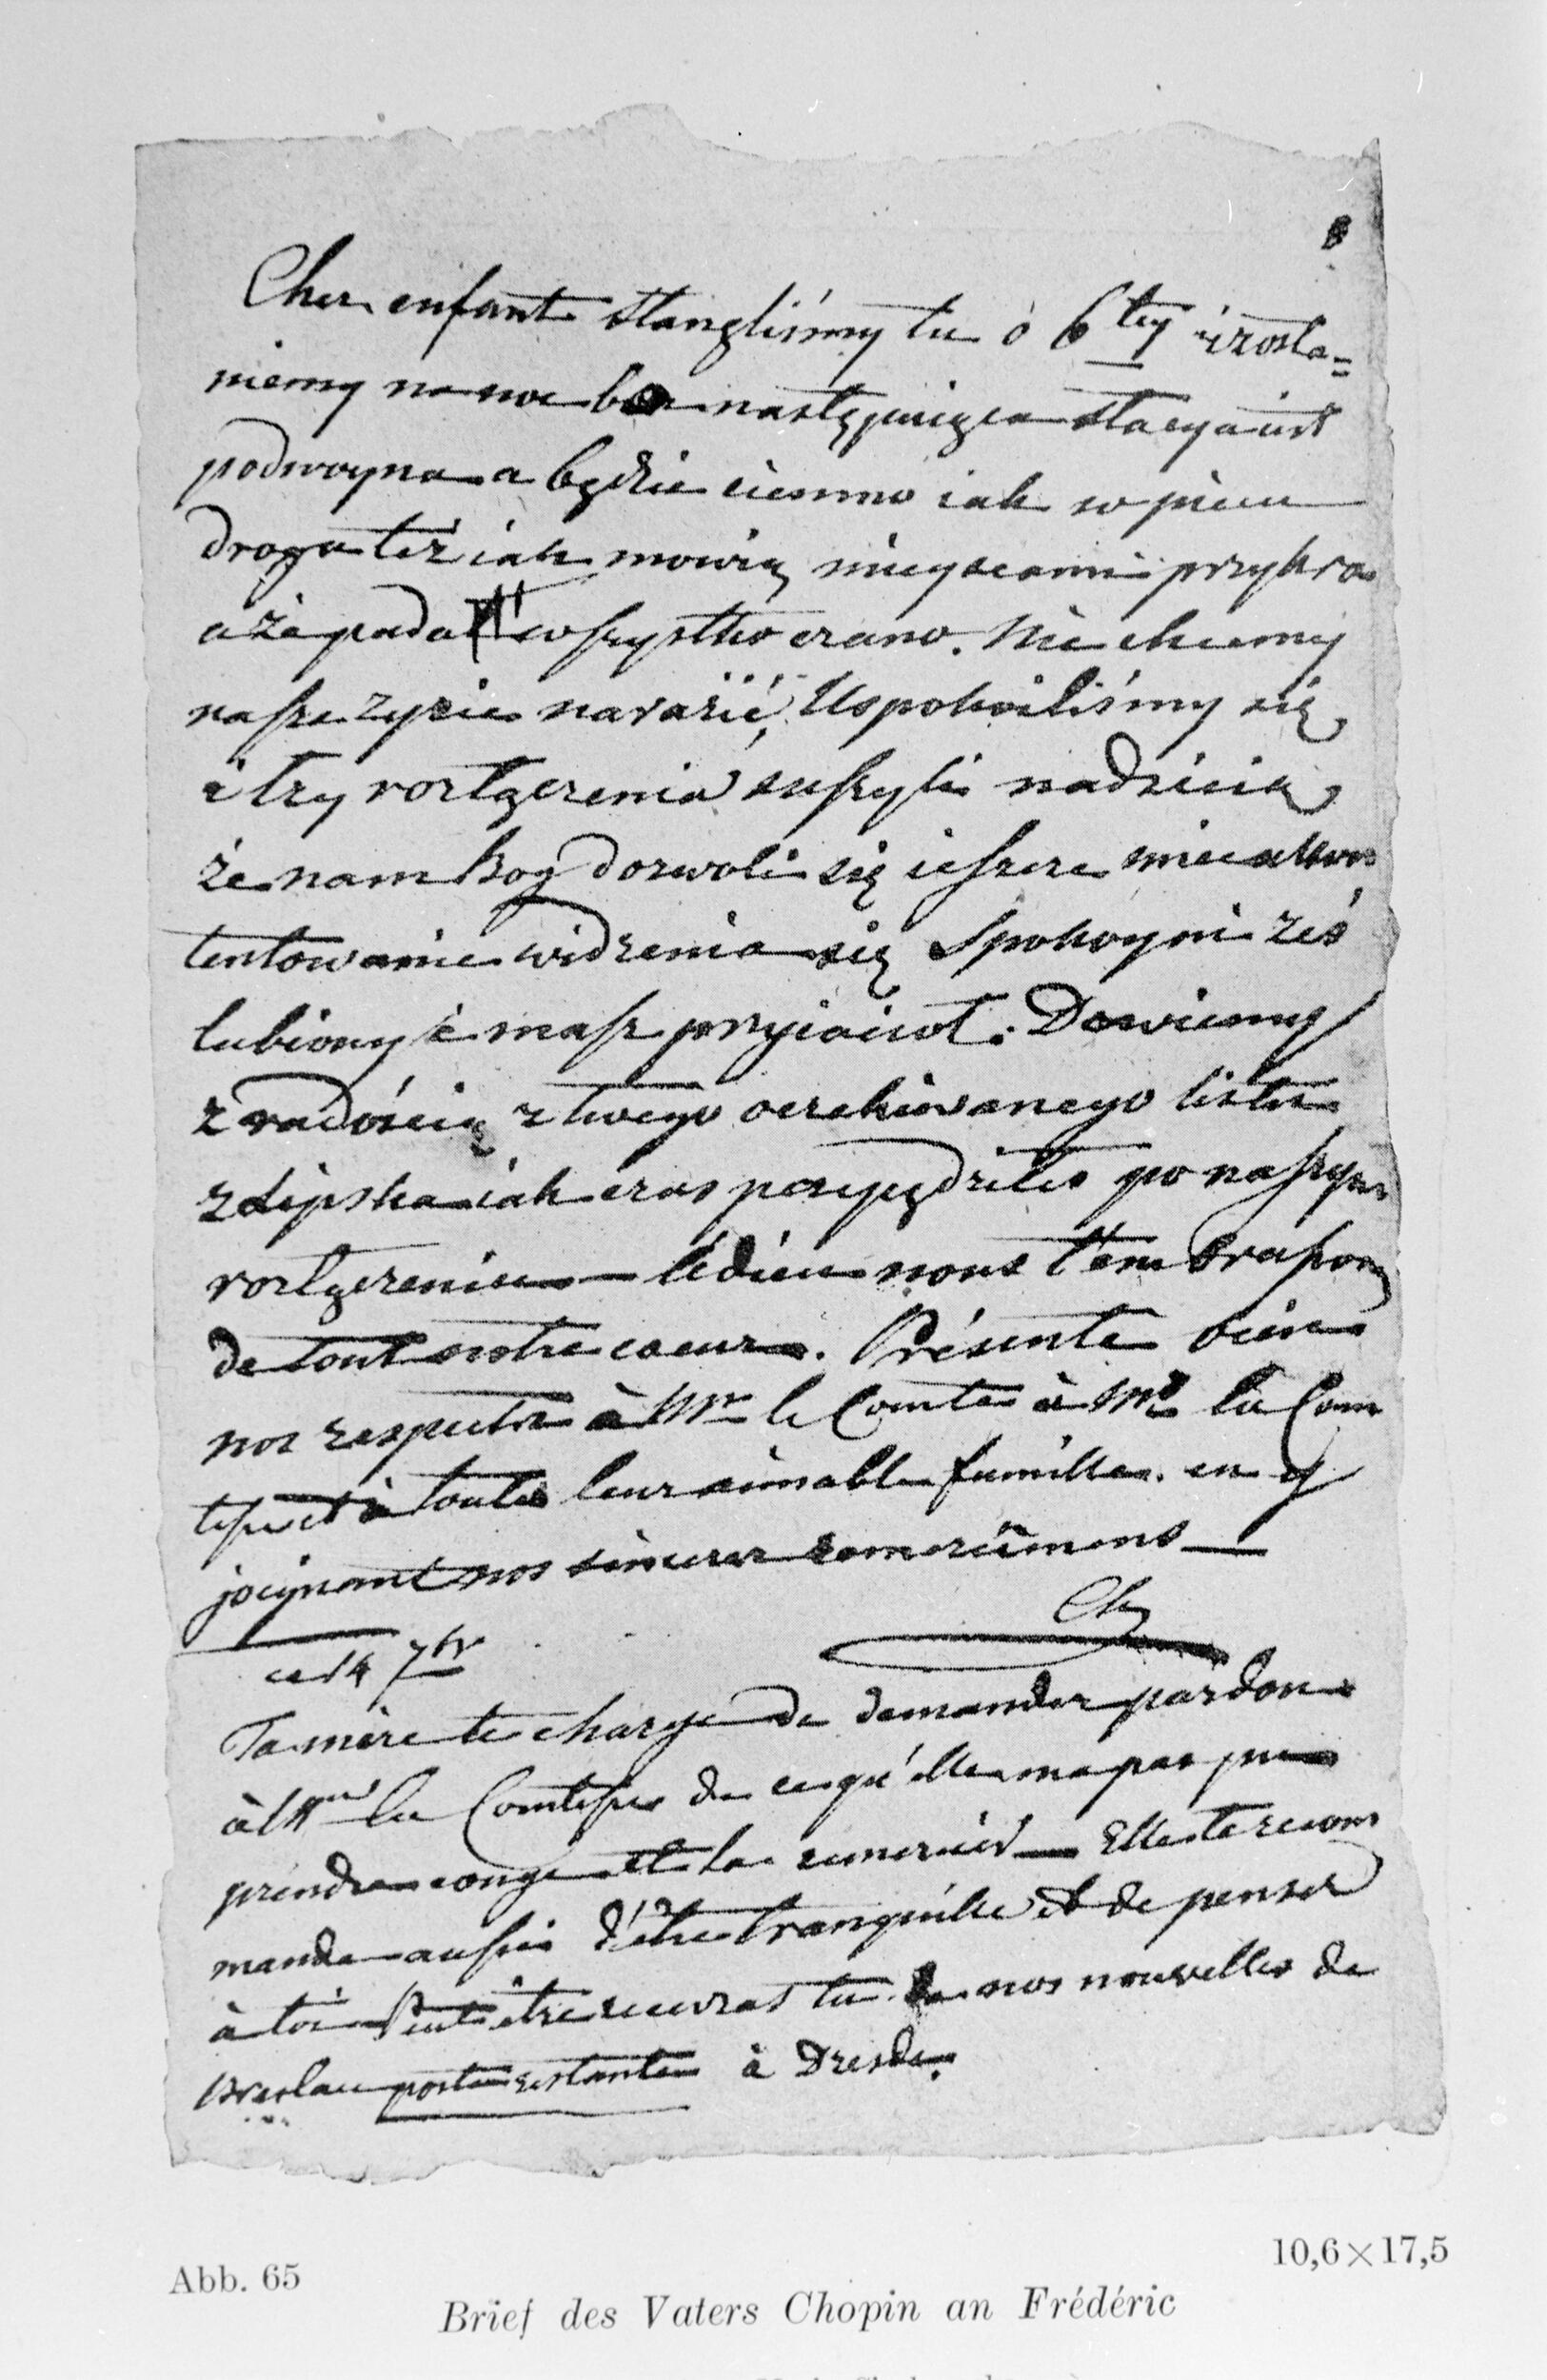 Cher enfant stanęliśmy tu o 6tey i zosta=
niemy na noc bo następuiąca stacya iest
podwoyna a będzie ciemno iak w piecu
droga też iak mowią mieyscami przykra
a że pada wszystko czarno. Nie chcemy
nasze zycie narazić, Uspokoiliśmy się
i łzy roztączenia suszyli nadzieią
że nam Bog dozwoli się ieszcze mieć ukon
tentowanie widzenia się Spokoyni żeś
lubiony i masz przyiaciół. Dowiemy
z radością z twego oczekiwanego listu
z Lipska iak czas przepędziłes po naszym
roztączeniu — Adieu nous t'embrassons
de tout notre coeur. Présente bien
nos respects à Mr le Comte à Me la Com
tesse et à toute leur aimable famille. en y
joignant nos sinceres remercîmens —
Ch
ce 14 7br
Ta mère te charge de demander pardon
à Mme la Comtesse de ce qu'elle n'a pas pu
prendre congé et la remercier — Elle te recom
mande aussi d'être tranquille et de penser
à toi Peut être recevras tu de nos nouvelles de
Breslau poste restante à Dresde.
Abb. 65
10,6×17,5
Brief des Vaters Chopin an Frédéric